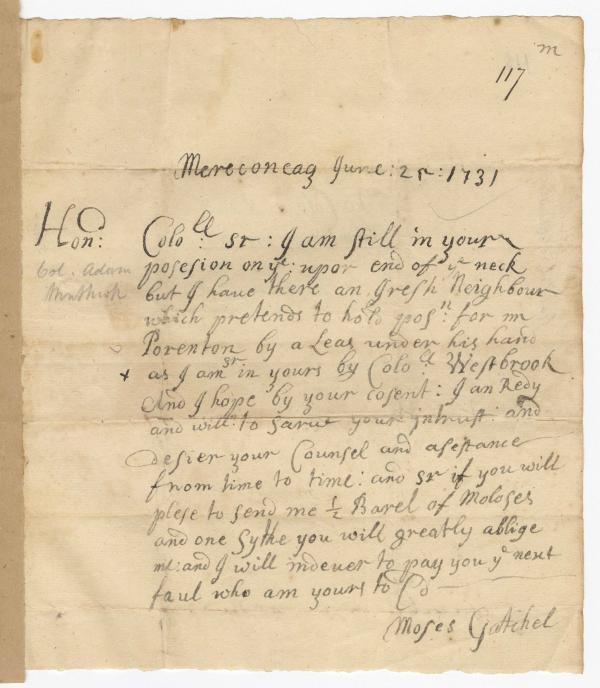 m
117
Mereconeag June: 25: 1731
Hon: Colo:ll sr: I am still in your
Col. Adam
posesion on ye: upor end of ye neck
Winthrop
but I have there an Iresh Neighbour
which pretends to hold posn: for mr
Porenton by a Leas under his hand
x as I am sr in yours by Colo:ll Westbrook
And I hope by your cosent: I an Redy
and will: to sarve your yntrust: and
desier your Counsel and asestance
from time to time: and sr if you will
plese to send me ½ Barel of Moloses
and one sythe you will greatly ablige
me: and I will indever to pay you ye next
faul who am yours to Co
Moses Gatchel